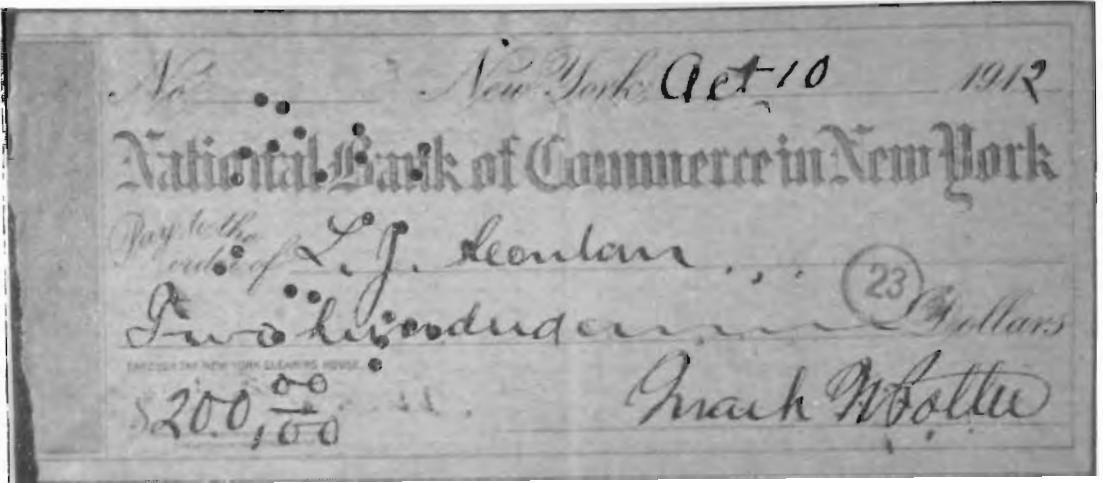 No New York, Oct 10 1912
National Bank of Commerce in New York
Pay to the
order of L. J.
23
Two hundred Dollars
THROUGH THE NEW YORK CLEARING HOUSE.
$200 00/100
Mark W Potter